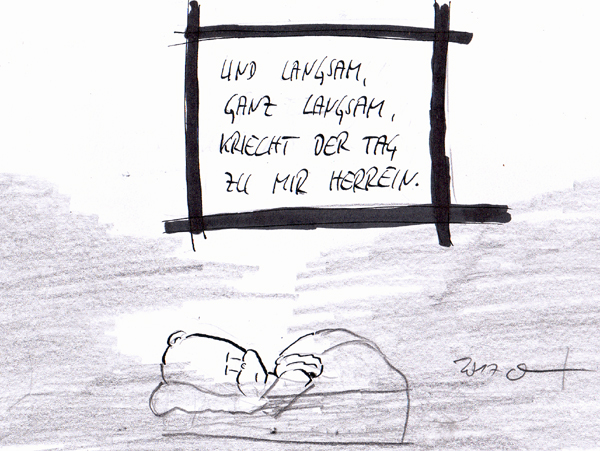 UND LANGSAM,
GANZ LANGSAM,
KRIECHT DER TAG
ZU MIR HERREIN.
2017